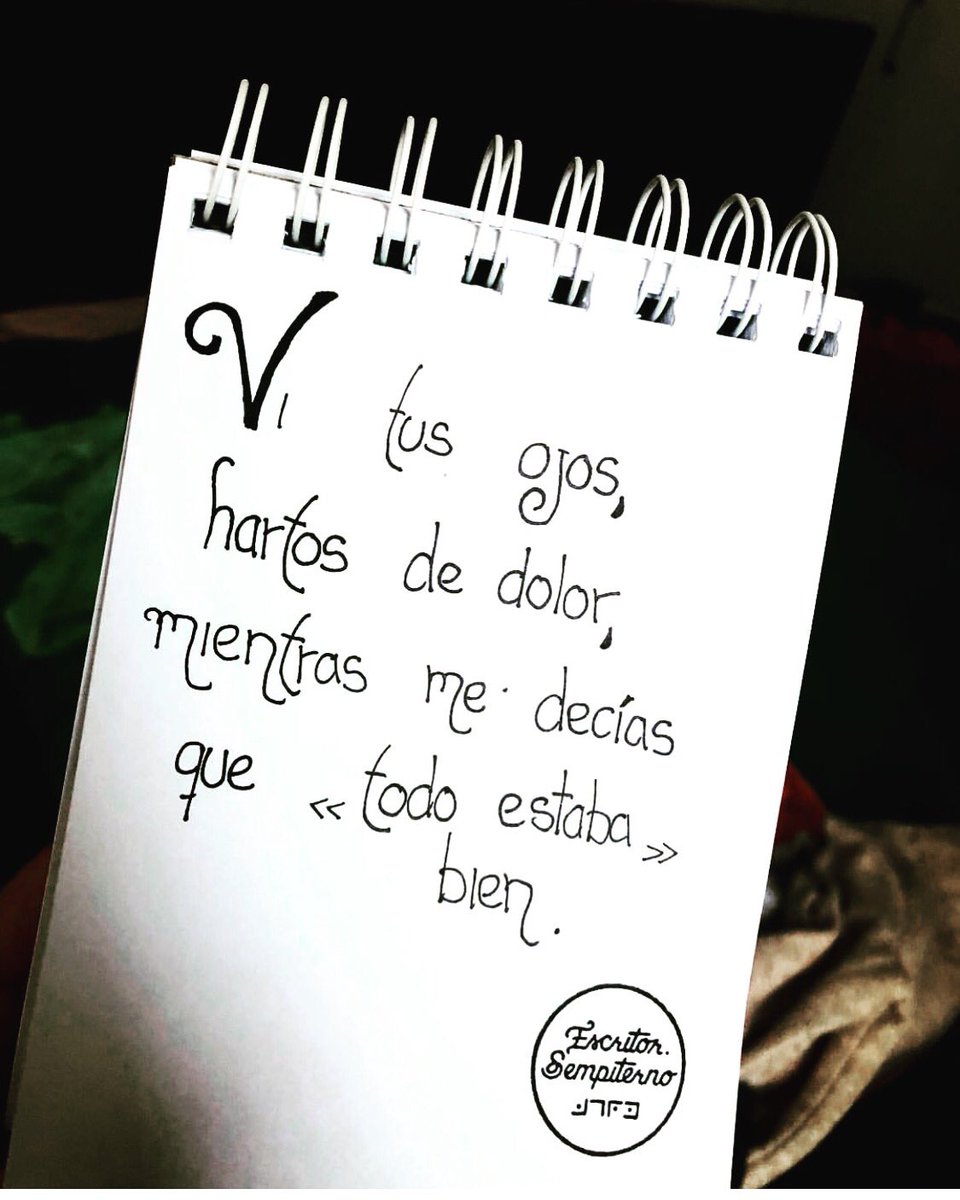 Vi tus ojos,
hartos de dolor,
mientras me decías
que «todo estaba»
bien.
Escritor.
Sempiterno